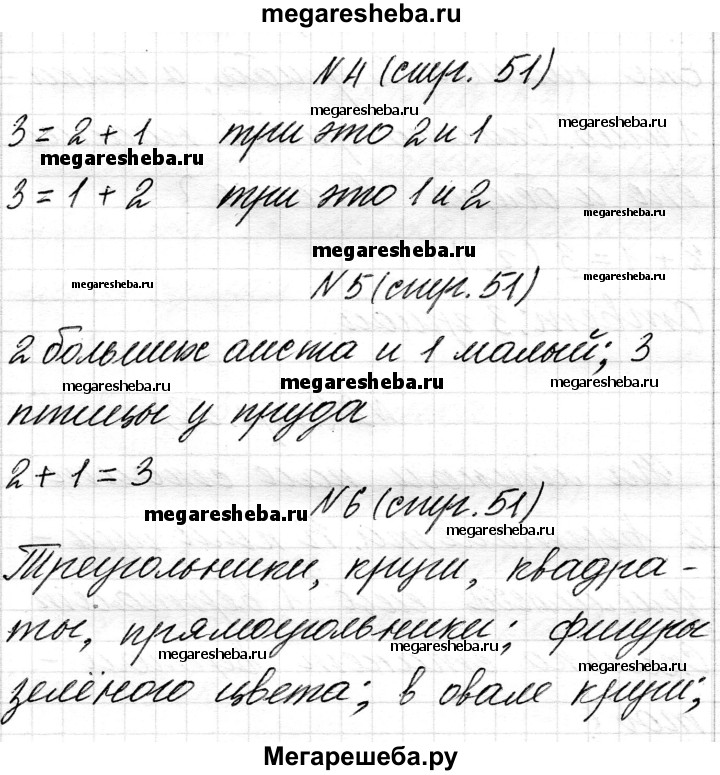 megaresheba.ru
N 4 (стр. 51)
megaresheba.ru
megaresheba.ru
3 = 2 + 1 три это 2 и 1
megaresheba.ru
3 = 1 + 2 три это 1 и 2
megaresheba.ru
megaresheba.ru
megaresheba.ru
megaresheba.ru
N 5 (стр. 51)
2 больших аиста и 1 малый; 3
megaresheba.ru
megaresheba.ru
megaresheba.ru
птицы у пруда
2 + 1 = 3
N 6 (стр. 51)
megaresheba.ru
megaresheba.ru
Треугольники, круги, квадра-
ты, прямоугольники; фигуры
megaresheba.ru
megaresheba.ru
megaresheba.ru
зелёного цвета; в овале круги;
Мегарешеба.ру